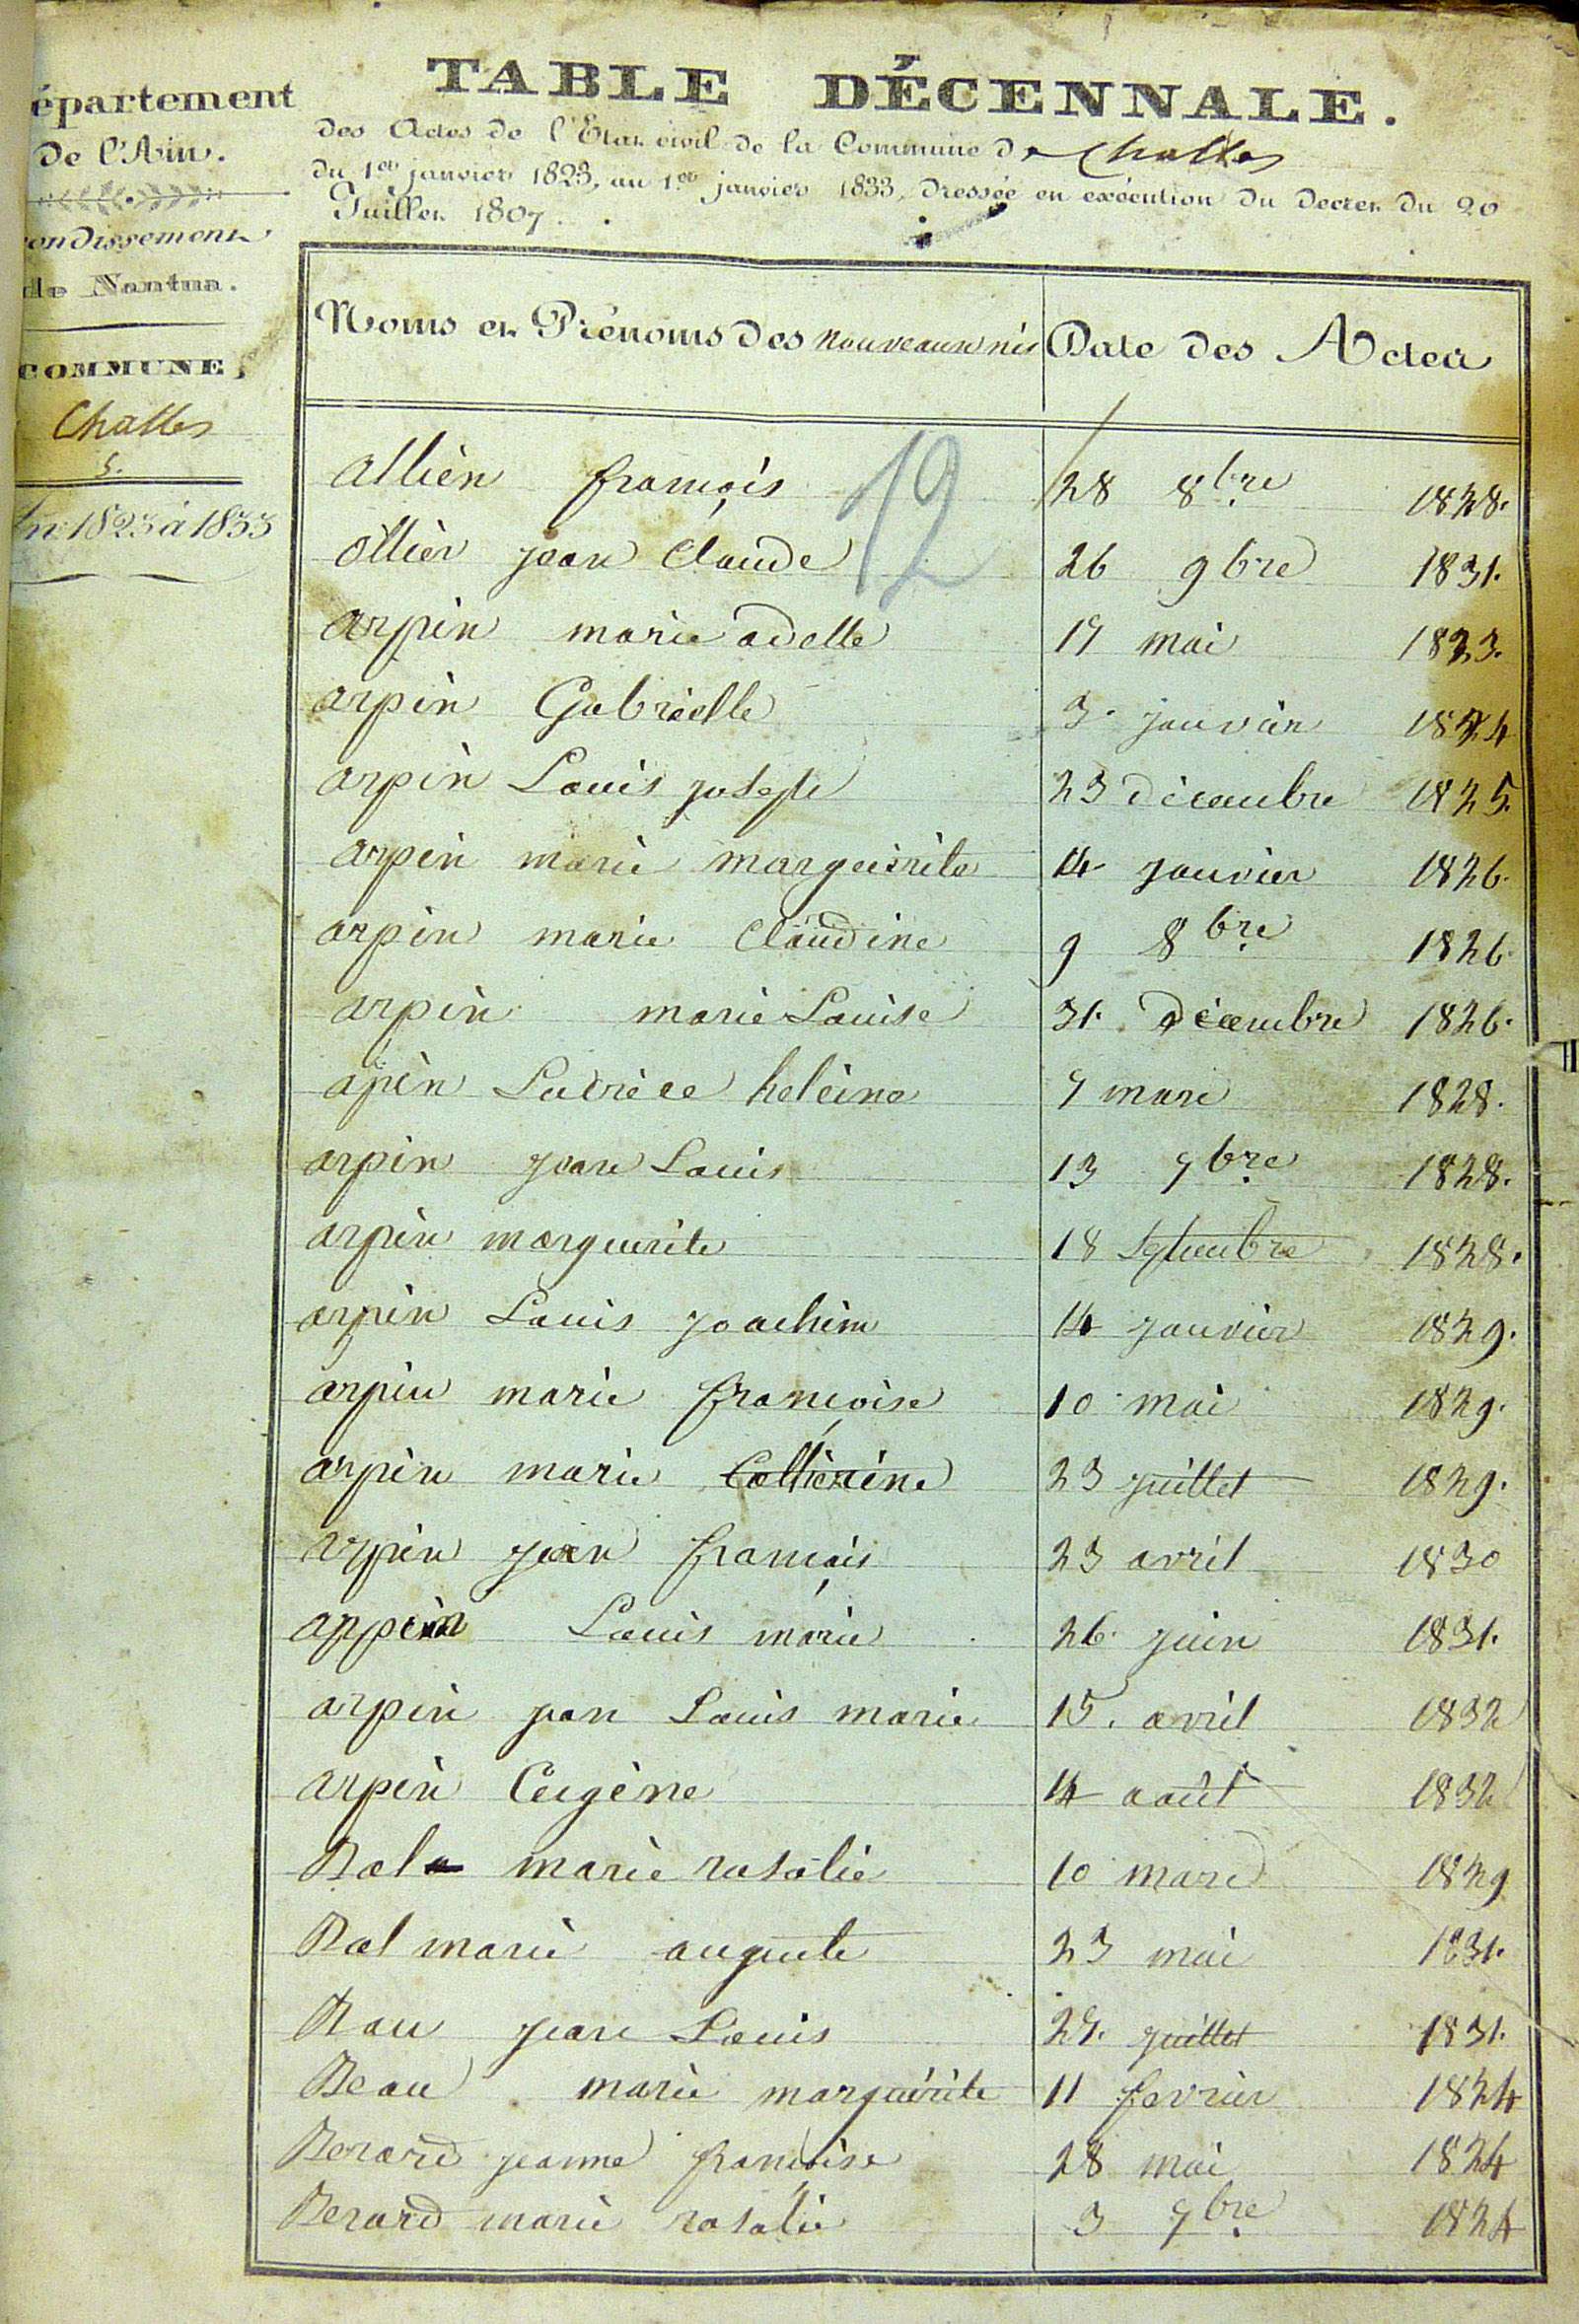 TABLE DÉCENNALE.
des Actes de l'Etat civil de la Commune de Challes
du 1er janvier 1823, au 1er janvier 1833, dressée en exécution du Decret du 20
Juillet 1807.
épartement
de l'Ain.
ondissement
de Nantua.
COMMUNE,
Challes
5.
1823 à 1833
Noms et Prénoms des nouveaux nés Date des Actes
12
allièn françois 28 8bre 1828.
ollièr jean Claude 26 9bre 1831.
arpin marie adelle 17 mai 1823.
arpin Gabrielle 3. janvier 1824
arpin Louis joseph 23 décembre 1825.
arpin marie margueirite 14 janvier 1826.
arpin marie Claudine 9 8bre 1826.
arpin marie Louise 31. décembre 1826.
apin heleine 7 mars 1828.
arpin jean Louis 13 7bre 1828.
arpin marguerite 18 Septembre 1828.
arpin Louis joachim 14 janvier 1829.
arpin marie françoise 10 mai 1829.
arpin marie Catherine 23 juillet 1829.
arpin jean françois 23 avril 1830
arpin Louis marie 26. juin 1831.
arpin jean Louis marie 15. avril 1832
arpin Eugène 14 août 1832
Bal marie rosalie 10 mars 1829
Bal marie auguste 23 mai 1831.
Bau jean Louis 27. juillet 1831.
Beau marie marguerite 11 fevrier 1824
Berard jeanne françoise 28 mai 1824
Berard marie rosalie 3 7bre 1824